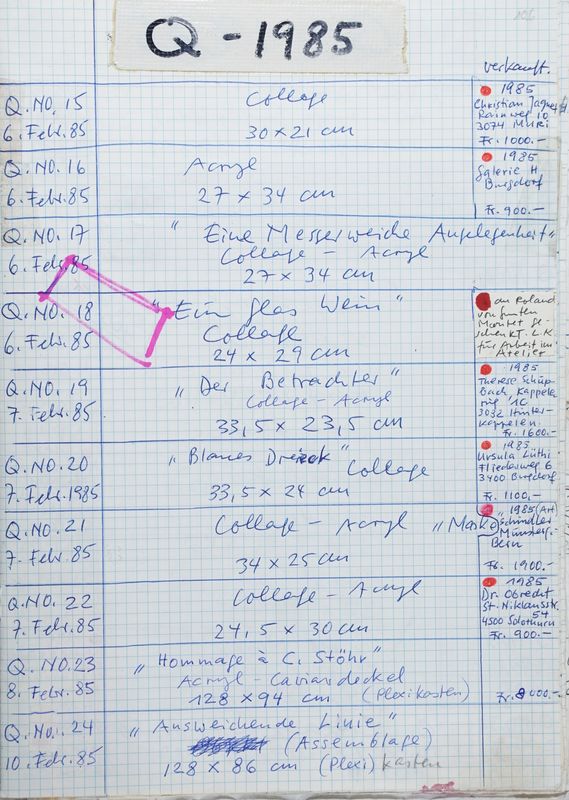 Q - 1985
verkauft.
Q.NO. 15
Collage
6. Febr. 85
30 x 21 cm
1985
Christian
Rainweg 10
3074 MURi
Fr. 1000.-
Q.NO. 16
Acryl
6. Febr. 85
27 x 34 cm
1985
Galerie H
Burgdorf
Fr. 900.-
Q.NO. 17
„ Eine Messerweiche Angelegenheit"
6. Febr. 85
Collage - Acryl
27 x 34 cm
Q.NO. 18
„ Ein Glas Wein "
6. Febr. 85
Collage
24 x 29 cm
an Roland
von Gunten
ge-
schenkt. L.K.
für Arbeit im
Atelier
Q.NO. 19
„ Der Betrachter "
7. Febr. 85
Collage - Acryl
33,5 x 23,5 cm
1985
Therese Schüp-
bach, Kappele
ring 1C
3032 Hinter-
kappelen.
Fr. 1600.-
Q.NO. 20
„ Blaues Dreieck " Collage
7. Febr. 1985
33,5 x 24 cm
1985
Ursula Lüthi
Fliederweg 6
3400 Burgdorf
Fr. 1100.-
Q.NO. 21
Collage - Acryl
7. Febr. 85
34 x 25 cm
1985
Schindler
Bern
Fr. 1900.-
Q.NO. 22
Collage - Acryl
7. Febr. 85
24,5 x 30 cm
1985
Dr. Obrecht
St. Niklausstr.
54
4500 Solothurn
Fr. 900.-
Q. NO. 23
„ Hommage à C. Stöhr "
8. Febr. 85
Acryl - Caviardeckel
128 x 94 cm (Plexikasten)
Q.NO. 24
„ Ausweichende Linie "
(Assemblage)
10. Febr. 85
128 x 86 cm (Plexi) kasten